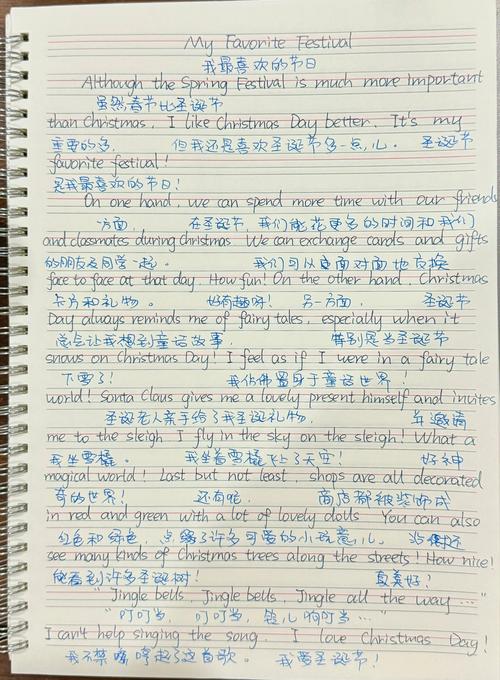 My Favorite Festival
我最喜欢的节日
Although the Spring Festival is much more important
虽然春节比圣诞节
than Christmas, I like Christmas Day better. It's my
重要的多, 但我还是喜欢圣诞节多一点儿。 圣诞节
favorite festival!
是我最喜欢的节日!
On one hand, we can spend more time with our friends
一方面, 在圣诞节,我们能花更多的时间和我们
and classmates during Christmas. We can exchange cards and gifts
的朋友及同学一起。 我们可以面对面地交换
face to face at that day. How fun! On the other hand, Christmas
卡片和礼物。 好有趣呀! 另一方面, 圣诞节
Day always reminds me of fairy tales, especially when it
总会让我想到童话故事, 特别是当圣诞节
snows on Christmas Day! I feel as if I were in a fairy tale
下雪了! 我仿佛置身于童话世界!
world! Santa Claus gives me a lovely present himself and invites
圣诞老人亲手给了我圣诞礼物, 并邀请
me to the sleigh. I fly in the sky on the sleigh! What a
我坐雪橇。 我坐着雪橇飞上了天空! 好神
magical world! Last but not least, shops are all decorated
奇的世界! 还有呢, 商店都被装饰成
in red and green with a lot of lovely dolls. You can also
红色和绿色,点缀了许多可爱的小玩意儿。 你还
see many kinds of Christmas trees along the streets! How nice!
能看到许多圣诞树! 真美好!
"Jingle bells, Jingle bells, Jingle all the way ..."
"叮叮当, 叮叮当, 铃儿响叮当..."
I can't help singing the song. I love Christmas Day!
我不禁哼起了这首歌。 我爱圣诞节!